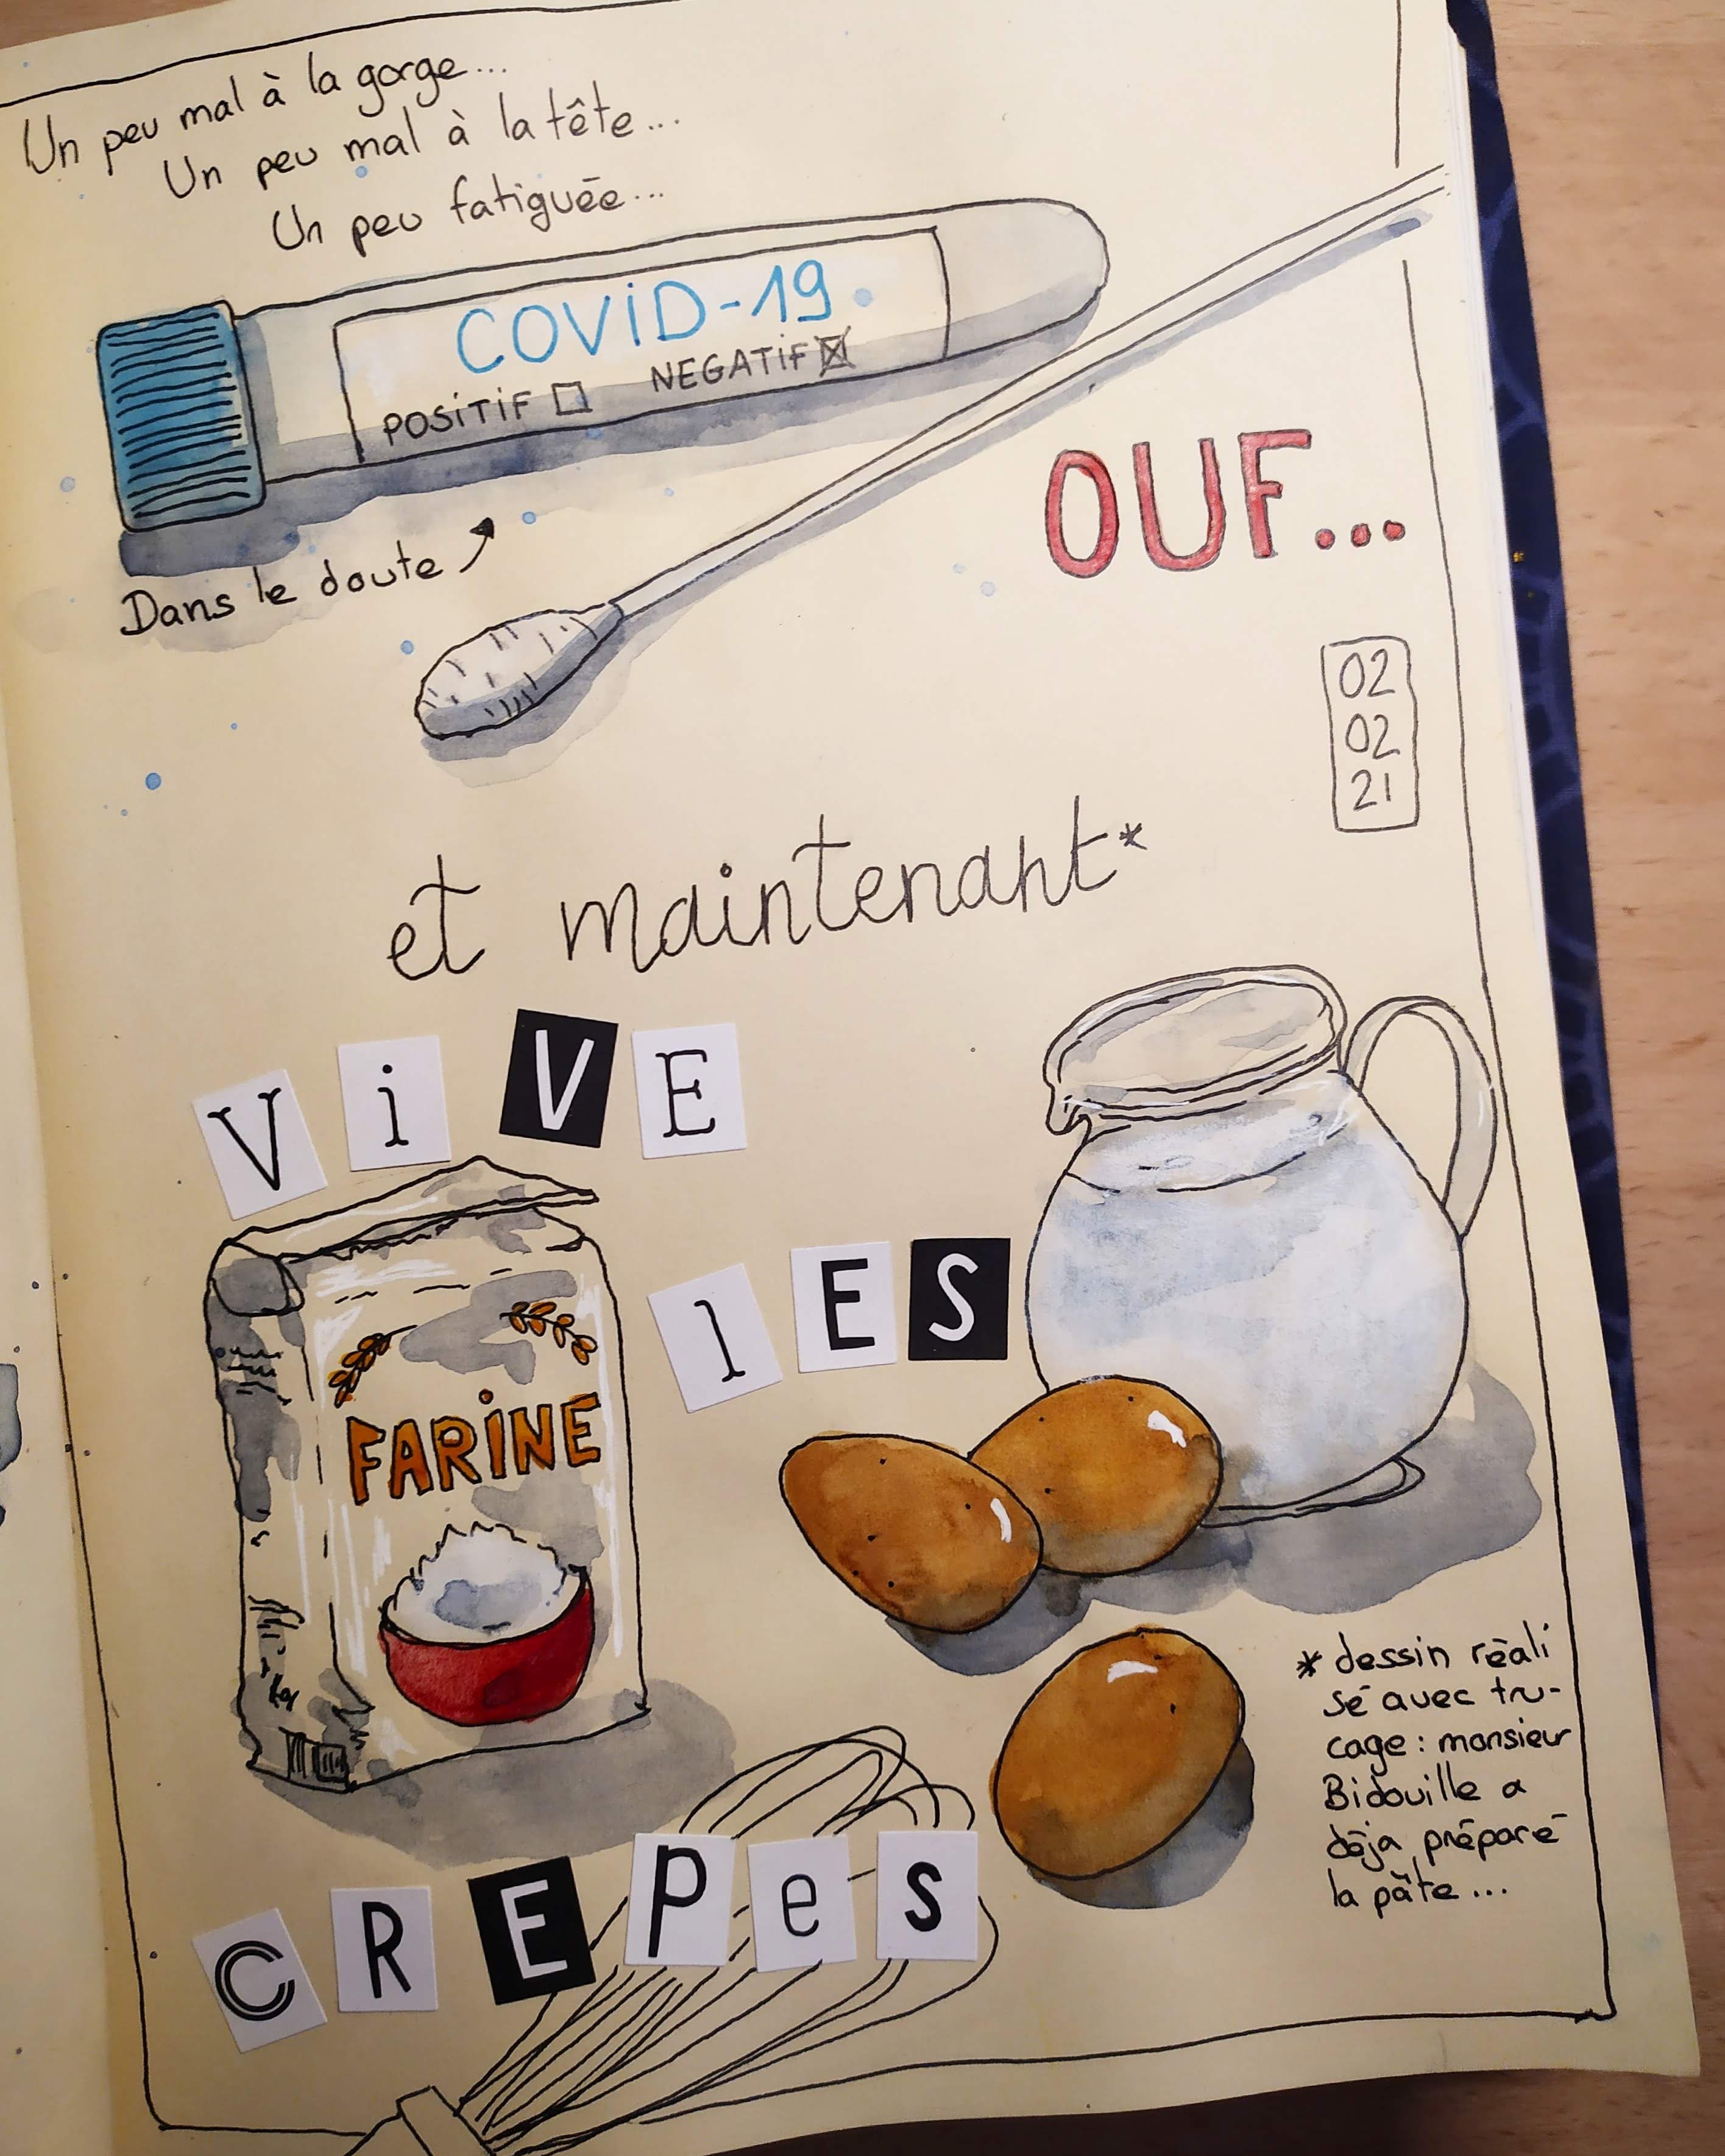 Un peu mal à la gorge...
Un peu mal à la tête...
Un peu fatiguée...
COViD-19
POSiTiF NEGATiF
Dans le doute
OUF...
02
02
21
et maintenant*
ViVE
lES
FARiNE
CREPes
* dessin réali
sé avec tru-
cage : monsieur
Bidouille a
déja préparé
la pâte...